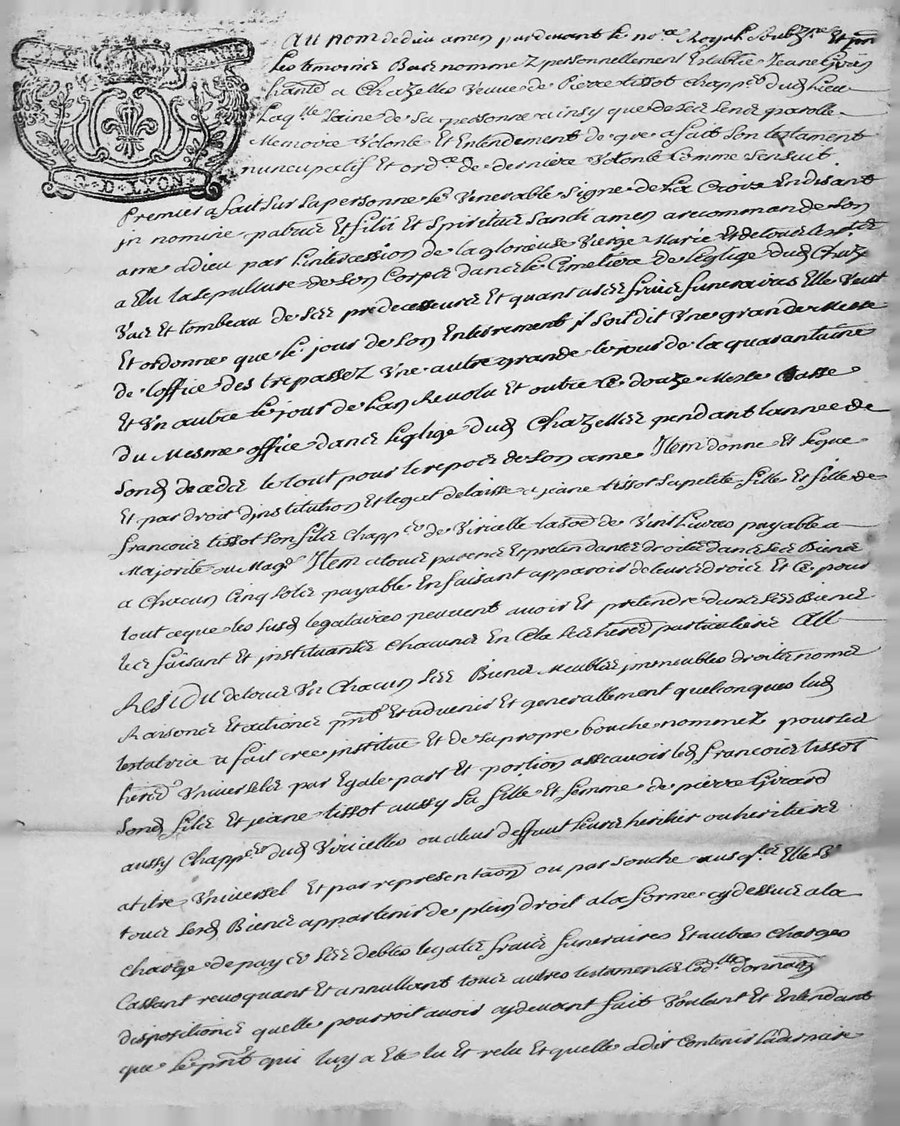 G D LYON
Au nom de dieu amen pardevant le no.re Royal soubz.ne Et pnt
Les temoince Bace nommez personnellement Establie Jeane
habitante a Chazelles veuve de Pierre tissot Chapp.r dud Lieu
Laq.lle saine de sa personne ainsy que de sece sence parolle
Memoire volonte Et Entendement de gre a fait son testament
nuncupatif Et ord.ce de derniere volonte Comme sensuit
Premier a fait sur sa personne le venerable Signe de La Croix En disant
jn nomine patrice Et filii Et Spirituce Sancti amen a recommande son
ame a dieu par L'intercession de la glorieuse vierge Marie Et de touce les
a Elu la sepulture de son Corpce dance le Cimetiere de l'Eglise dud Chaz
vace Et tombeau de sece predecesseurce Et quant a sece fraice funerairce Elle veut
Et ordonne que le jour de son Enterrement jl soit dit vne grande Messe
de l'office des trepassez vne autre grande le jour de la quarantaine
Et vn autre le jour de L'an Revolu Et outre ce douze Messe basse
du Mesme office dance L'eglise dud Chazellce pendant l'annee de
sond decedce le tout pour le repoce de son ame Jtem donne Et legue
Et par droit d'jnstitution Et legat delaisse a jeane tissot sa petite fille Et fille de
francoice tissot son filce Chapp.er de Viricelle la so.e de vint Livres payable a
Majorite ou Mag.e Jtem a touce parence Et pretendante droitce dance sece Bience
a Chacun Cinq solce payable En faisant apparoir de leurce droice Et Ce pour
tout ce que les susd legataires peuvent avoir Et pretendre dance sece Bience
lece faisant Et jnstituante chacunce En Cela sece heredrs particulierce All
Residu de touce vn Chacun sece Bience Meublce jmmeubles droitce nomce
Raisonce Et actionce pnts Et advenir Et generallement quelconques lad
testatrice a fait cree jnstitue Et de sa propre bouche nommez pour sece
heredrs vniverselce par Egale part Et portion asscavoir led francoice tissot
sond filce Et jeane tissot aussy sa fille Et femme de pierre Girard
aussy Chapp.er dud Viricelles ou a leur deffaut leurce heritier ou heritierce
a titre vniversel Et par representaon ou par souche ausq.lce Elle v
touce sesd Bience appartenir de plein droit a la forme cy dessuce a la
charge de payer sece debtes legatce fraice funeraires Et autres Charges
Cassant revoquant Et annullant touce autres testamentce Cod.lle donnaon
dispositionce quelle pourroit avoir cy devant fait voulant Et Entendant
que le pnt qui luy a Ete lu Et relu Et quelle a dit Contenir sa derniere